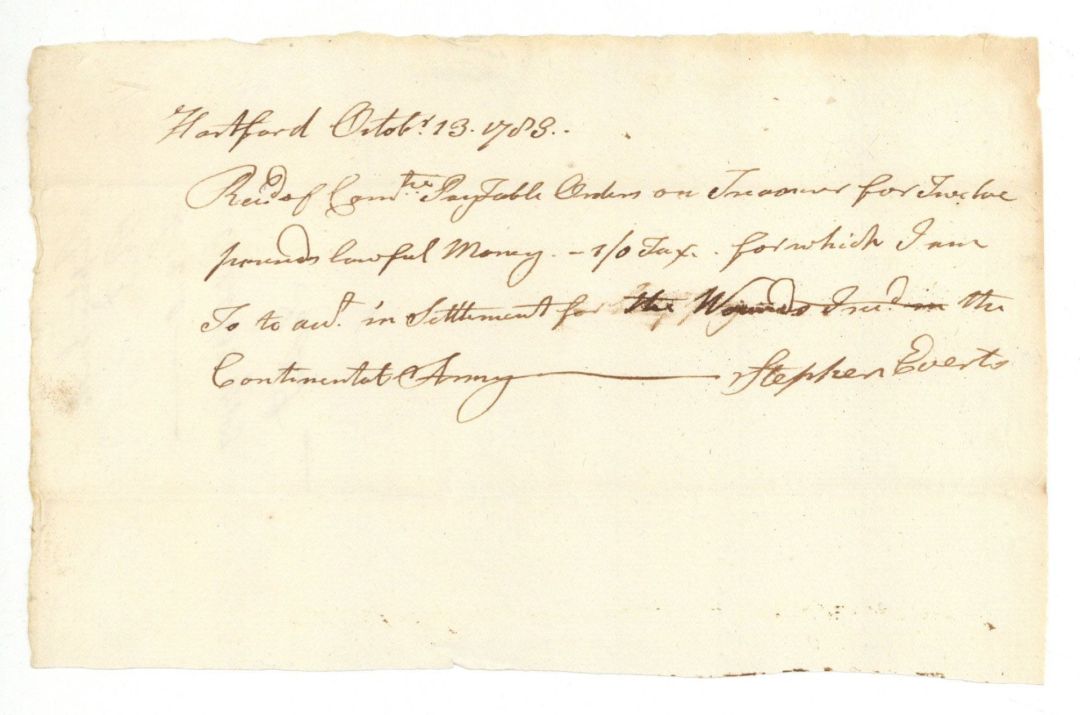 Hartford Octobr. 13. 1783..
Recd of Comtee PayTable Orders on Treasurer for Twelve
pounds lawful Money. – 1/0 Tax. for which I am
To to acct. in Settlement for the Wounds Recd. in the
Continental Army — Stephen Everts